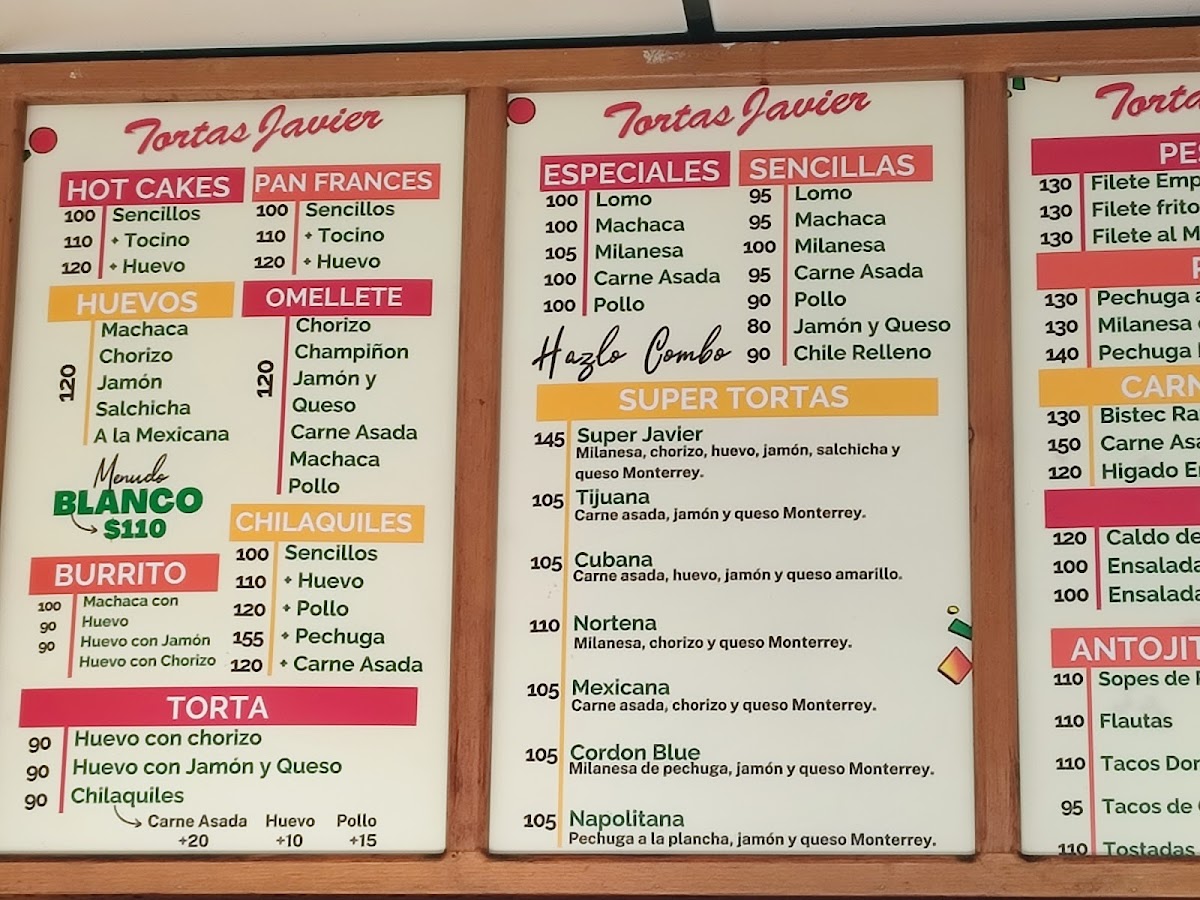 Tortas Javier
HOT CAKES
100 Sencillos
110 + Tocino
120 + Huevo
PAN FRANCES
100 Sencillos
110 + Tocino
120 + Huevo
HUEVOS
120
Machaca
Chorizo
Jamón
Salchicha
A la Mexicana
OMELLETE
120
Chorizo
Champiñon
Jamón y
Queso
Carne Asada
Machaca
Pollo
Menudo
BLANCO
$110
CHILAQUILES
100 Sencillos
110 + Huevo
120 + Pollo
155 + Pechuga
120 + Carne Asada
BURRITO
100 Machaca con
90 Huevo
90 Huevo con Jamón
Huevo con Chorizo
TORTA
90 Huevo con chorizo
90 Huevo con Jamón y Queso
90 Chilaquiles
Carne Asada Huevo Pollo
+20 +10 +15
Tortas Javier
ESPECIALES
100 Lomo
100 Machaca
105 Milanesa
100 Carne Asada
100 Pollo
Hazlo Combo
SENCILLAS
95 Lomo
95 Machaca
100 Milanesa
95 Carne Asada
90 Pollo
80 Jamón y Queso
90 Chile Relleno
SUPER TORTAS
145 Super Javier
Milanesa, chorizo, huevo, jamón, salchicha y
queso Monterrey.
105 Tijuana
Carne asada, jamón y queso Monterrey.
105 Cubana
Carne asada, huevo, jamón y queso amarillo.
110 Nortena
Milanesa, chorizo y queso Monterrey.
105 Mexicana
Carne asada, chorizo y queso Monterrey.
105 Cordon Blue
Milanesa de pechuga, jamón y queso Monterrey.
105 Napolitana
Pechuga a la plancha, jamón y queso Monterrey.
130 Filete
130 Filete frito
130 Filete al
130 Pechuga
130 Milanesa
140 Pechuga
130 Bistec
150 Carne
120 Higado
120 Caldo de
100 Ensalada
100 Ensalada
110 Sopes de
110 Flautas
110 Tacos
95 Tacos de
110 Tostadas